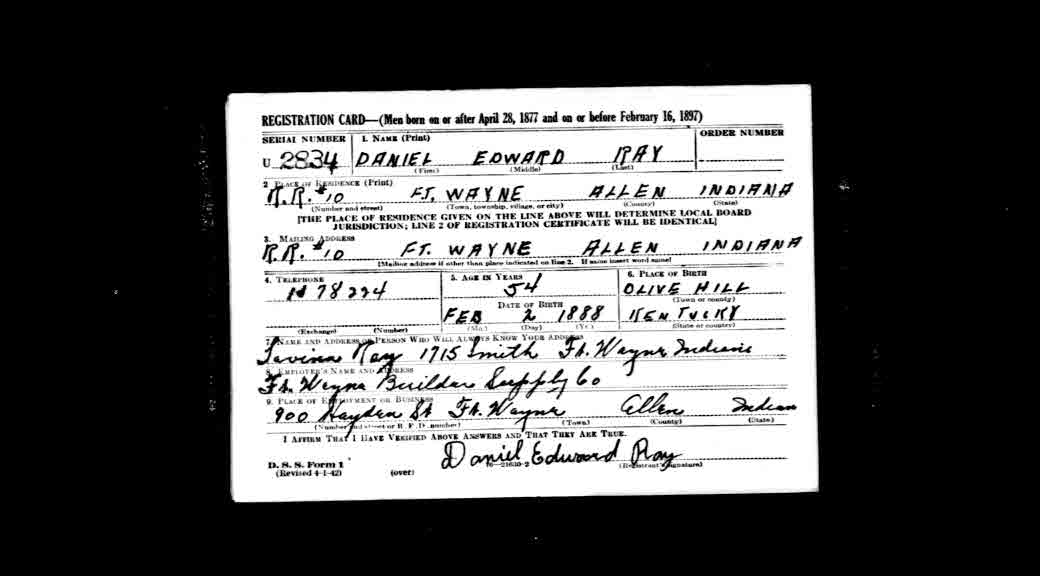 REGISTRATION CARD—(Men born on or after April 28, 1877 and on or before February 16, 1897)
SERIAL NUMBER 1. NAME (Print) ORDER NUMBER
U 2834 DANIEL EDWARD RAY
(First) (Middle) (Last)
2. PLACE OF RESIDENCE (Print)
R.R. #10 FT. WAYNE ALLEN INDIANA
(Number and street) (Town, township, village, or city) (County) (State)
[THE PLACE OF RESIDENCE GIVEN ON THE LINE ABOVE WILL DETERMINE LOCAL BOARD
JURISDICTION; LINE 2 OF REGISTRATION CERTIFICATE WILL BE IDENTICAL]
3. MAILING ADDRESS
R.R. #10 FT. WAYNE ALLEN INDIANA
[Mailing address if other than place indicated on line 2. If same insert word same]
4. TELEPHONE 5. AGE IN YEARS 6. PLACE OF BIRTH
H 78224 54 OLIVE HILL
DATE OF BIRTH (Town or county)
FEB 2 1888 KENTUCKY
(Exchange) (Number) (Mo.) (Day) (Yr.) (State or country)
7. NAME AND ADDRESS OF PERSON WHO WILL ALWAYS KNOW YOUR ADDRESS
Lavina Ray 1715 Smith Ft. Wayne Indiana
8. EMPLOYER'S NAME AND ADDRESS
Ft. Wayne Builders Supply Co
9. PLACE OF EMPLOYMENT OR BUSINESS
900 Hayden St Ft. Wayne Allen Indiana
(Number and street or R. F. D. number) (Town) (County) (State)
I AFFIRM THAT I HAVE VERIFIED ABOVE ANSWERS AND THAT THEY ARE TRUE.
Daniel Edward Ray
D. S. S. Form 1
(Revised 4-1-42) (over) 16—21630-2 (Registrant's signature)